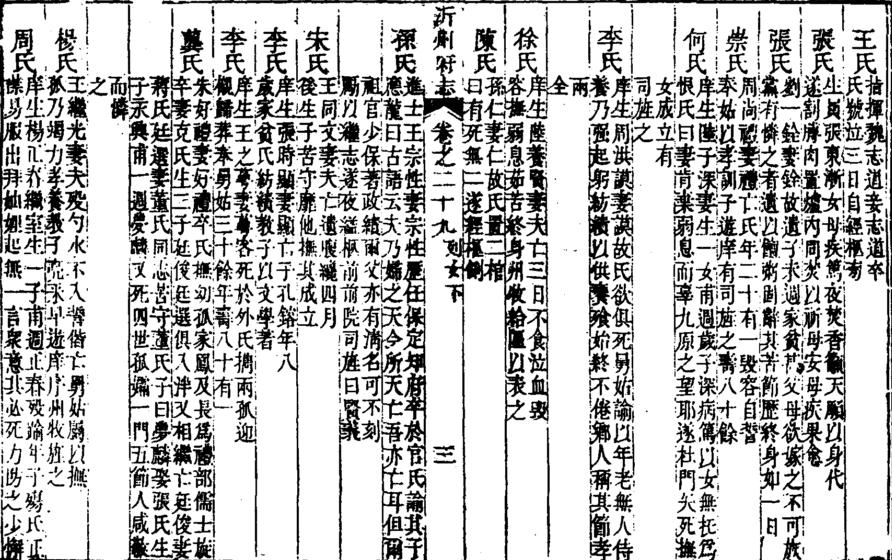 王氏 指揮魏志道妻志道卒
氏號泣三日自經柩旁
張氏 生員張東漸女母疾篤夜焚香籲天願以身代
遂割膊肉置爐內同焚以祈母安母疾果愈
張氏 劉一銓妻銓故遺子未週家貧甚父母欲嫁之不可族
黨有憐之者遺以饘粥固辭其苦節歷終身如一日
崇氏 周尚禮妻禮亡氏年二十有一毀容自誓
奉姑以孝訓子遊庠有司旌之壽八十餘
何氏 庠生陸子深妻生一女甫週歲子深病篤以女無托為
恨氏曰妻肯棄弱息而辜九原之望耶遂杜門矢死撫
女成立有
司旌之
李氏 庠生周洪謨妻謨故氏欲俱死舅姑諭以年老無人侍
養乃强起躬紡績以供饔飧始終不倦鄉人稱其節孝
兩
全
徐氏 庠生陸養賢妻夫亡三日不食泣血毀
容撫弱息茹苦終身州牧給匾以表之
陳氏 孫仁妻仁故氏置二棺
曰有死無二遂經柩側
沂州府志 卷之二十九 列女下 三
孫氏 進士王宗性妻宗性歷任保定知府卒於官氏諭其子
應龍曰古語云夫乃婦之天今所天亡吾亦亡耳但爾
祖官少保著政績爾父亦有清名可不刻
勵以繼志遂夜縊柩前兩院司旌曰賢烈
宋氏 王同文妻夫亡遺腹纔四月
後生子苦守靡他撫其成立
李氏 庠生張時顯妻顯亡子孔鎔年八
歲家貧氏紡績教子以文學著
李氏 庠生王之萼妻萼客死於外氏擕兩孤迎
櫬歸葬奉舅姑三十餘年壽八十有一
龔氏 朱好禮妻好禮卒氏撫幼孤家鳳及長為禮部儒士旋
卒妻克氏生二子廷俊廷選俱入泮又相繼亡廷俊妻
蔣氏廷選妻董氏同志苦守董氏子曰夢麟娶張氏生
子永興甫一週夢麟又死四世孤孀一門五節人咸敬
而憐
之
楊氏 王繼光妻夫歿勺水不入誓偕亡舅姑勗以撫
孤乃竭力孝養教子亮采早遊庠序州牧旌之
周氏 庠生楊正春繼室生一子甫週正春歿踰年子殤氏止
謀易服出拜妯娌起無一言衆意其必死力防之少懈